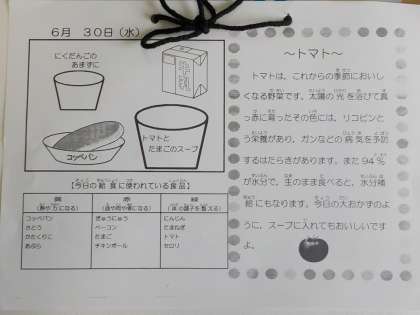 6月 30日(水)
にくだんごの
あまずに
トマトと
たまごのスープ
コッペパン
【今日の給食に使われている食品】
黄 赤 緑
(熱や力になる) (血や肉や骨になる) (体の調子を整える)
コッペパン ぎゅうにゅう にんじん
さとう ベーコン たまねぎ
かたくりこ たまご トマト
あぶら チキンボール セロリ
～トマト～
トマトは、これからの季節においし
くなる野菜です。太陽の光を浴びて真
っ赤に育ったその色には、リコピンと
いう栄養があり、ガンなどの病気を予防
するはたらきがあります。また94%
が水分で、生のまま食べると、水分補
給にもなります。今日の大おかずのよ
うに、スープに入れてもおいしいです
よ。